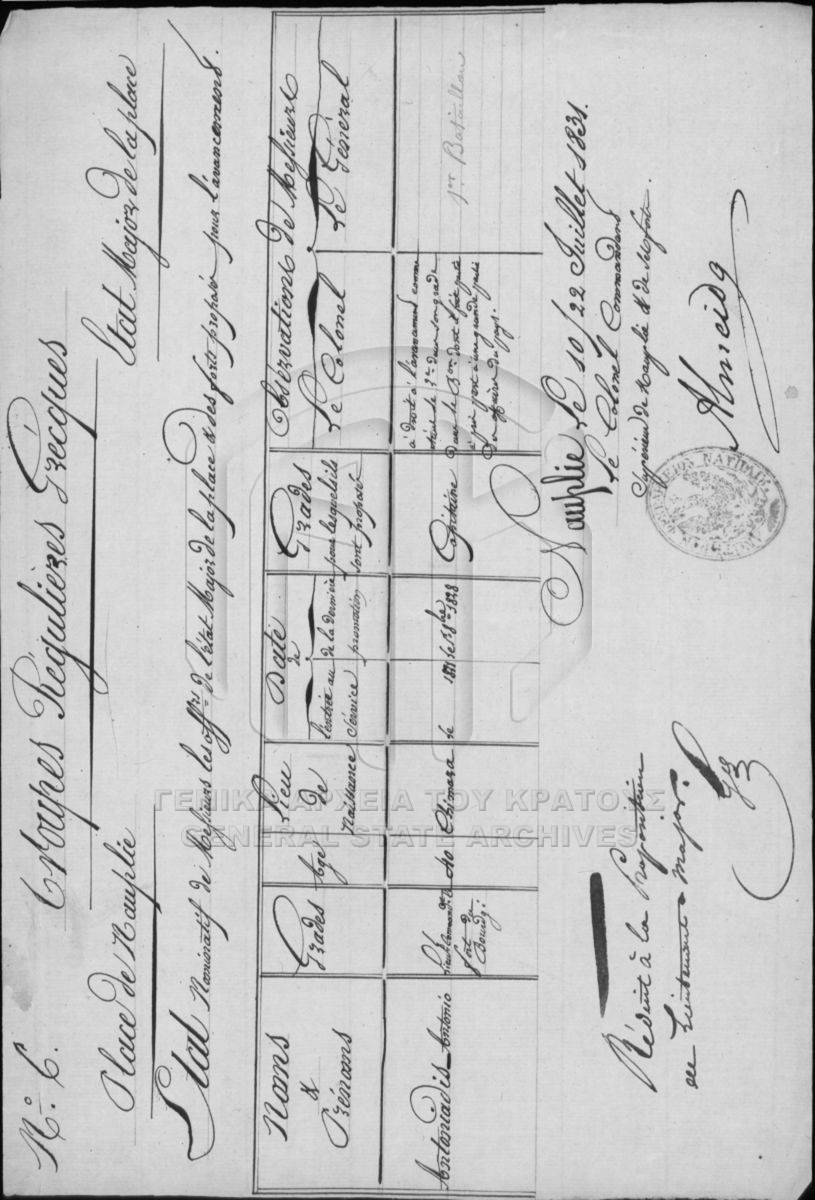 N.º 6.
Troupes Régulières Grecques
Place de Nauplie
Etat Major de la place
Etat Nominatif de Messieurs les offrs de l'état Major de la place & des forts proposés pour l'avancement.
Noms & Prénoms
Grades
Age
Lieu de Naissance
Date de
l'entrée au Service
de la dernière promotion
Grades pour lesquels ils sont proposés
Observations de Messieurs
Le Colonel
Le Général
Antoniadis Antonio
fort
40
Chimara
le
1828
Capitaine
à droit à l'avancement comme
du pays.
pr Bataillon
Nauplie le 10/22 Juillet 1831.
Le Colonel Commandant
Supérieur de Nauplie & de ses forts.
Almeida
Réduit à la Proposition
Lieutenant Major.
ΓΕΝΙΚΑ ΑΡΧΕΙΑ ΤΟΥ ΚΡΑΤΟΥΣ
GENERAL STATE ARCHIVES